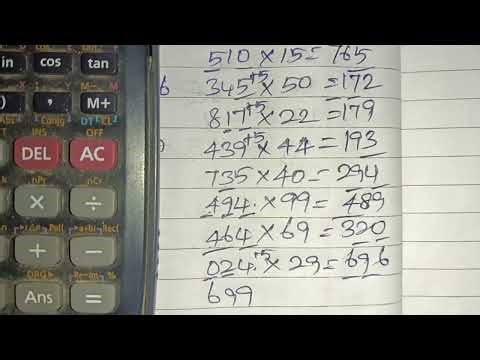 in cos tan
) , M+
DT CL
INS OFF
DEL AC
nPr nCr
× ÷
Pol( Rec(
+ −
DRG▸ Re-Im %
Ans =
510×15=765
345+5×50=172
817+5×22=179
439+5×44=193
735×40=294
494.×99=489
464×69=320
024.+5×29=696
699